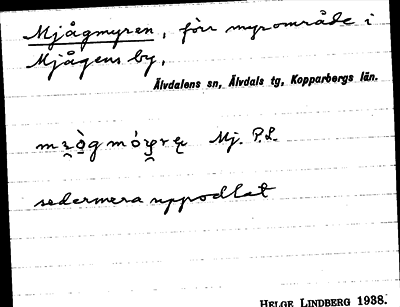 Mjågmyren, förr myrområde i
Mjågens by,
Älvdalens sn, Älvdals tg, Kopparbergs län.
Mj. P.L.
sedermera uppodlat
HELGE LINDBERG 1938.